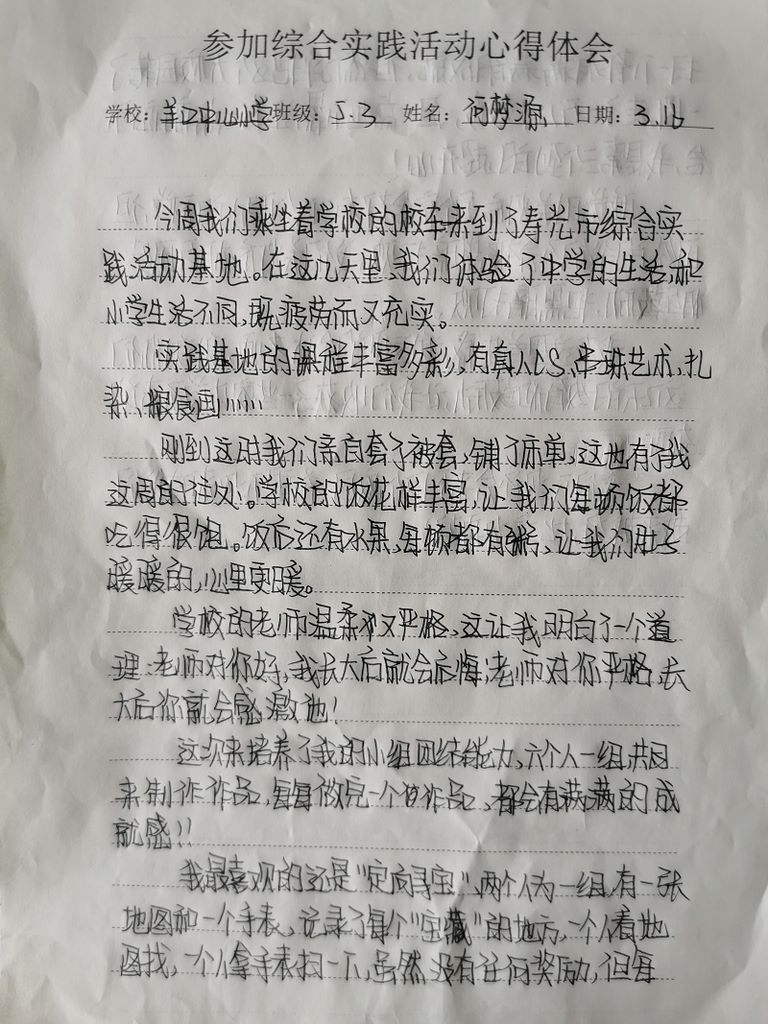 参加综合实践活动心得体会
学校：羊口中心小学班级：5.3 姓名：何梦源 日期：3.16
今周我们乘坐着学校的校车来到了寿光市综合实
践活动基地。在这几天里,我们体验了中学的生活,和
小学生活不同,既疲劳而又充实。
实践基地的课程丰富多彩,有真人CS、串珠艺术、扎
染、粮食画······
刚到这时我们亲自套了被套,铺了床单,这也有了我
这周的住处。学校的饭花样丰富,让我们每顿饭都
吃得很饱。饭后还有水果,每顿都有粥,让我们肚子
暖暖的,心里更暖。
学校的老师温柔又严格,这让我明白了一个道
理:老师对你好,我长大后就会后悔;老师对你严格,长
大后你就会感激他!
这次来培养了我的小组团结能力,六个人一组,共同
来制作作品,每每做完一个作品,都会有满满的成
就感!!
我最喜欢的还是"定向寻宝",两个人为一组,有一张
地图和一个手表,记录了每个"宝藏"的地方,一个人看地
图找,一个人拿手表扫一下,虽然没有任何奖励,但每